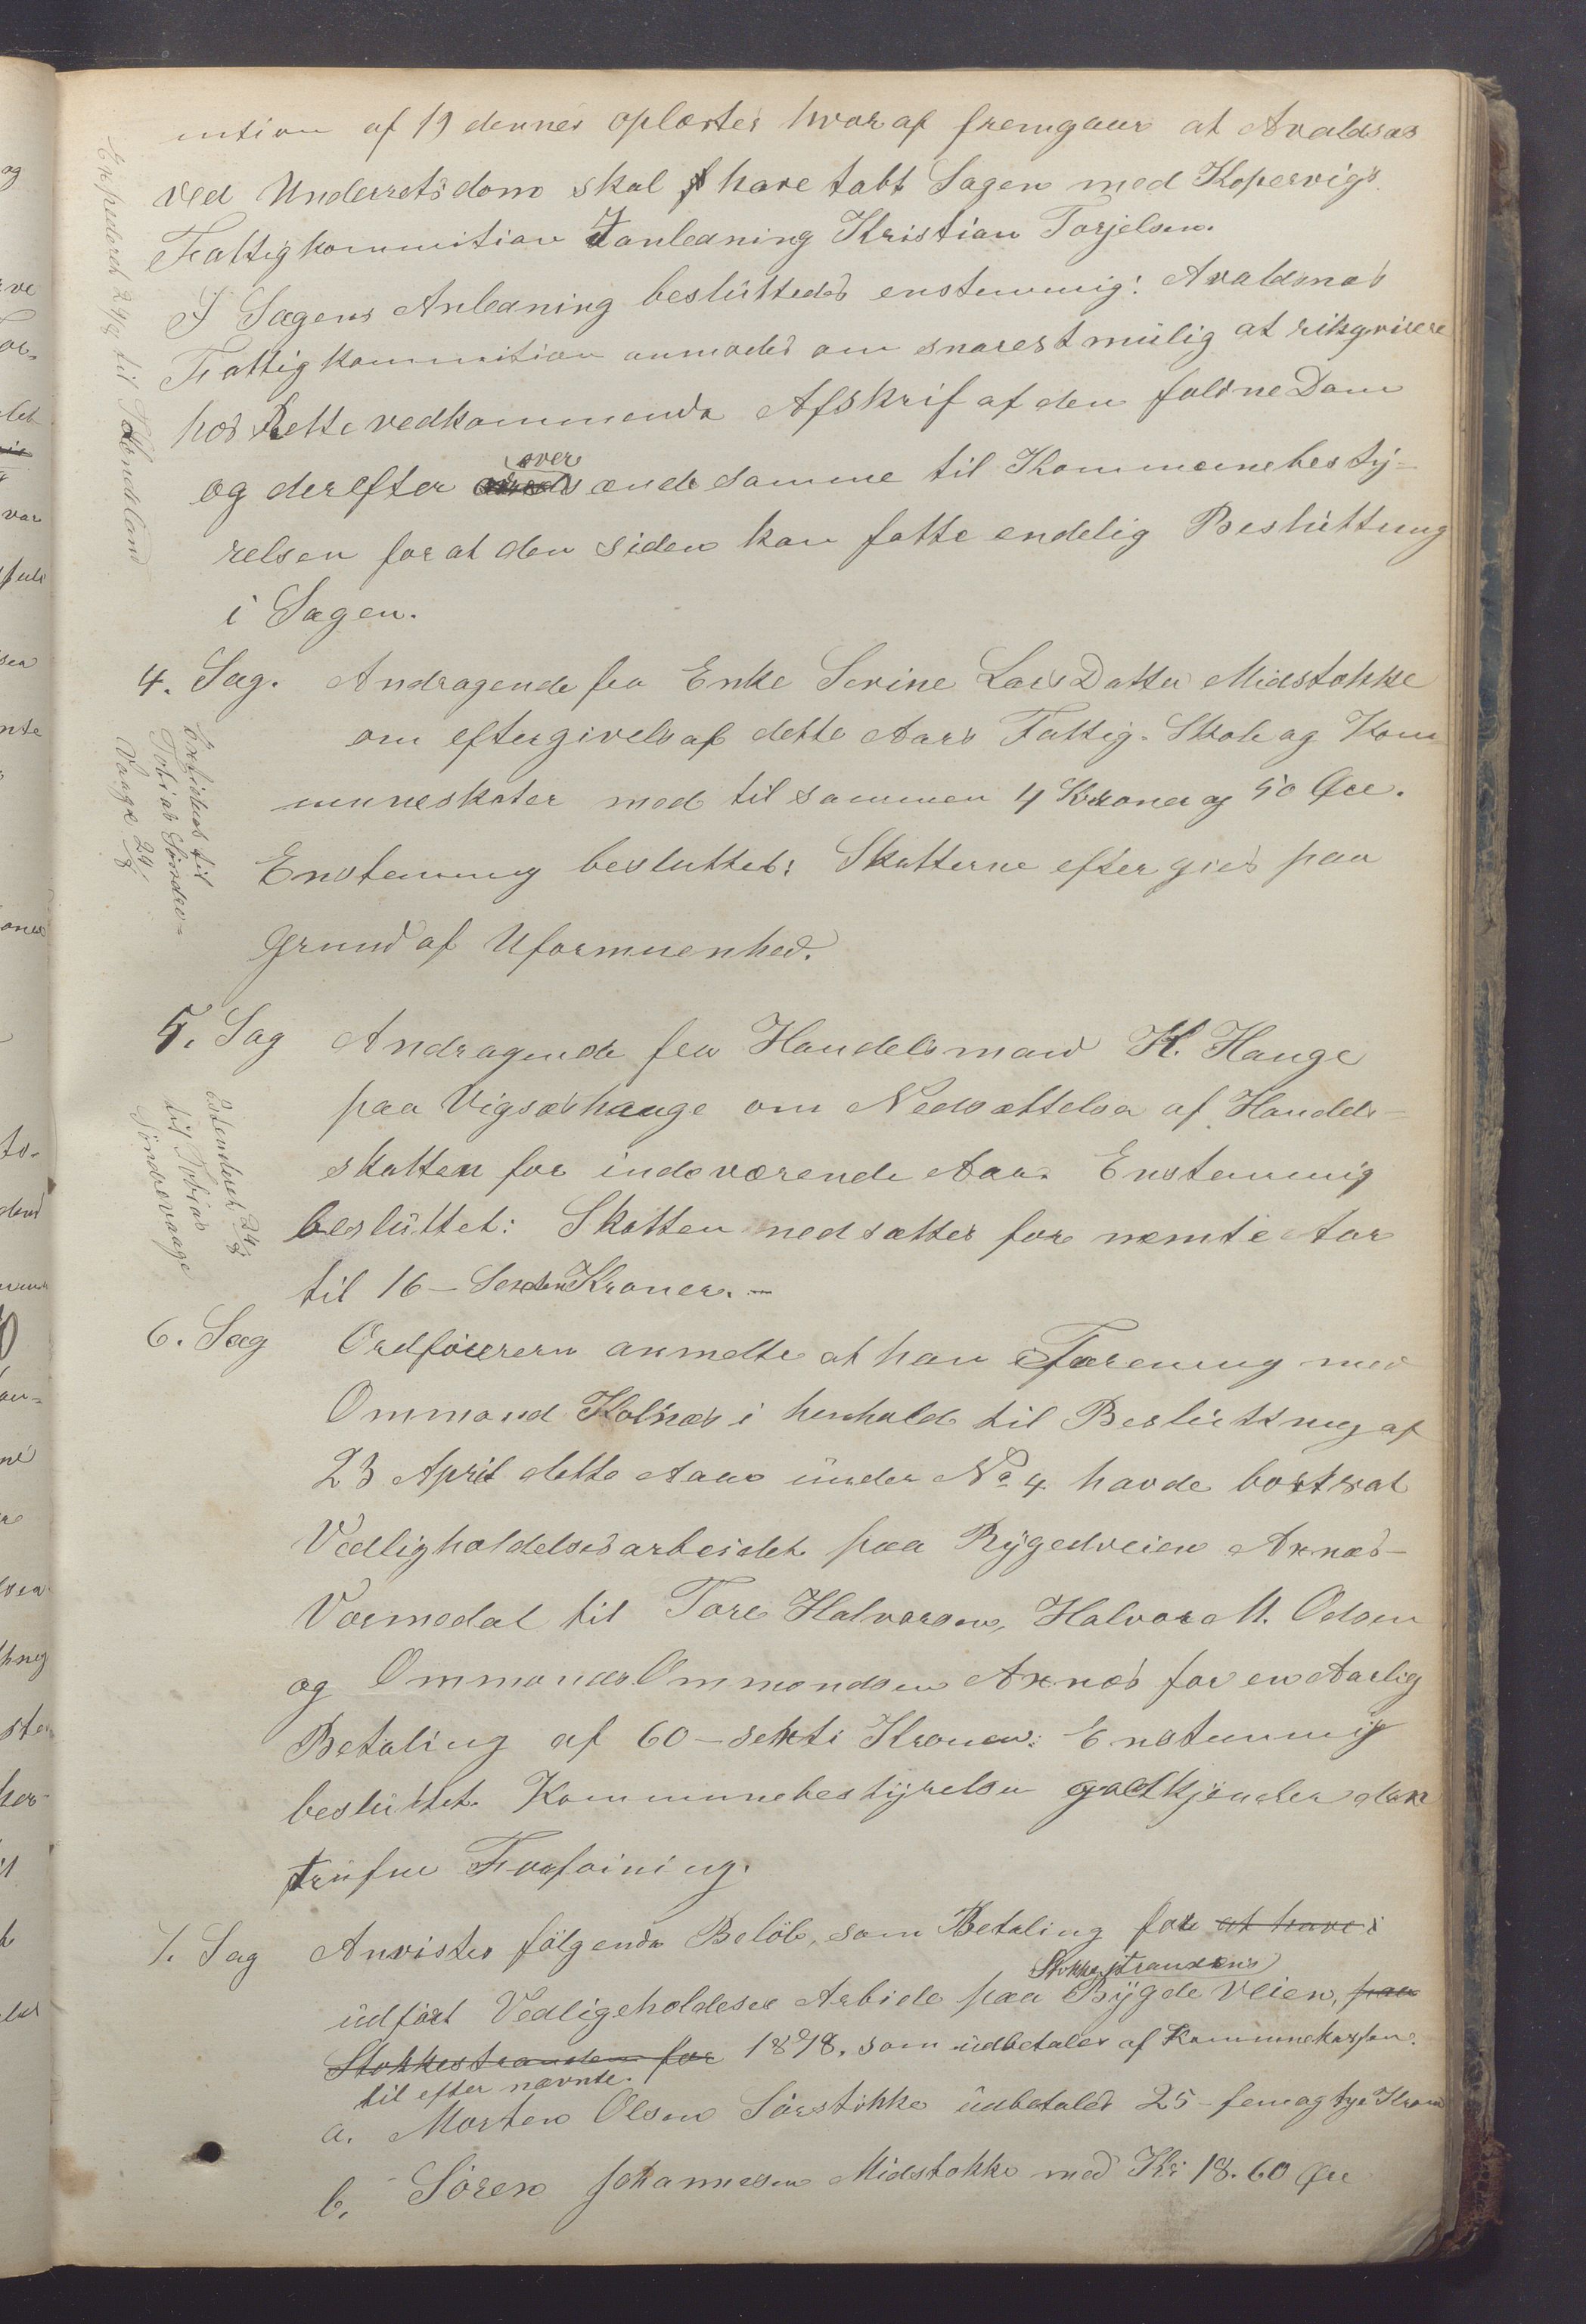 mtion af 19 dennes oplæstes hvoraf fremgaar at Avaldsæs
ved Underretsdom skal have tabt Sagen med Kopervigs
Fattigkommition Ianledning Kristian Torjelsen.
I Sagens Anledning beslüttedes enstemmig: Avaldsnæs
Fattigkommition anmodes om snarest mülig at rikqvirere
hos Rette vedkommende Afskrif af den faldne Dom
og derefter over sænde samme til Kommunebestÿ-
relsen for at den siden kan fatte endelig Beslüttning
i Sagen.
Expederet 29/8 til
4. Sag. Andragende fra Enke Serine LarsDatter Midstokke
om eftergivels af dette Aars Fattig- Skole og Kom
muneskater med til sammen 4 Kroner og 50 Øre.
Enstemmig besluttet: Skatterne eftergives paa
Grund af Uformuenhed.
Tobias Söndre-
Vaage 24/8
5. Sag Andragende fra Handelsmand K. Hauge
paa Vigsæshauge om Nedsættelse af Handels-
skatten for indeværende Aar. Enstemmig
beslüttet: Skatten nedsættes for næmte Aar
til 16 - Sexten Kroner. -
24/8
til Tobias
Söndrevaage
6. Sag Ordföreren anmelte at han i Forening med
Ommond Kolnæs i henhold til Beslüttning af
23 April dette Aar ünder No 4 havde bortsat
Vedligholdelsesarbeidet paa Bÿgedveien Aknæs-
Vormedal til Tore Halvorsen, Halvor M. Odsen
og Ommond Ommondsen Aknæs for en Aarlig
Betaling af 60 - sekti Kroner: Enstemmig
beslüttet. Kommunebestÿrelsen godtkjender den
trufne Forföining.
7. Sag Anvistes fölgende Belöb, som Betaling for at have i
Stokkestrandens
üdfört Vedligeholdesee Arbide paa Bÿgde veien, paa
Stokkestranden for 1878, som üdbetales af Kommunekassen
til efter nævnte.
a. Morten Olsen Sörstokke üdbetales 25 - femogtyve Kroner
b. Sören Johannesen Midstokke med Kr 18.60 Øre